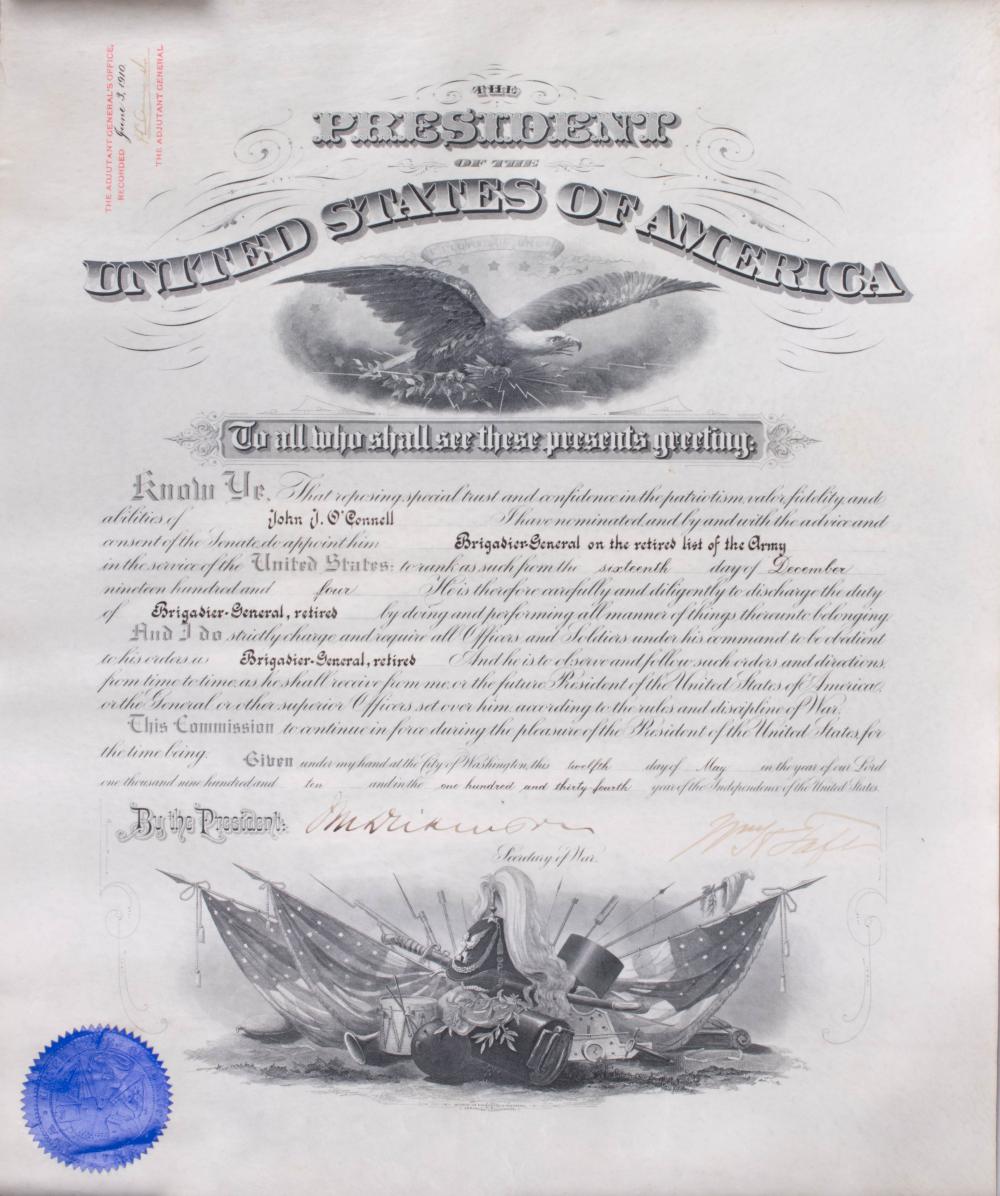 THE ADJUTANT GENERAL'S OFFICE,
RECORDED June 3, 1910
THE ADJUTANT GENERAL.
THE
PRESIDENT
OF THE
UNITED STATES OF AMERICA
To all who shall see these presents greeting:
Know Ye, That reposing special trust and confidence in the patriotism, valor, fidelity and
abilities of John J. O'Connell I have nominated and by and with the advice and
consent of the Senate, do appoint him Brigadier-General on the retired list of the Army
in the service of the United States: to rank as such from the sixteenth day of December
nineteen hundred and four He is therefore carefully and diligently to discharge the duty
of Brigadier-General, retired by doing and performing all manner of things thereunto belonging
And I do strictly charge and require all Officers and Soldiers under his command to be obedient
to his orders as Brigadier-General, retired And he is to observe and follow such orders and directions,
from time to time, as he shall receive from me, or the future President of the United States of America,
or the General or other superior Officers set over him, according to the rules and discipline of War.
This Commission to continue in force during the pleasure of the President of the United States, for
the time being. Given under my hand at the City of Washington, this twelfth day of May in the year of our Lord
one thousand nine hundred and ten and in the one hundred and thirty-fourth year of the Independence of the United States.
By the President: J M Dickinson Wm H Taft
Secretary of War.